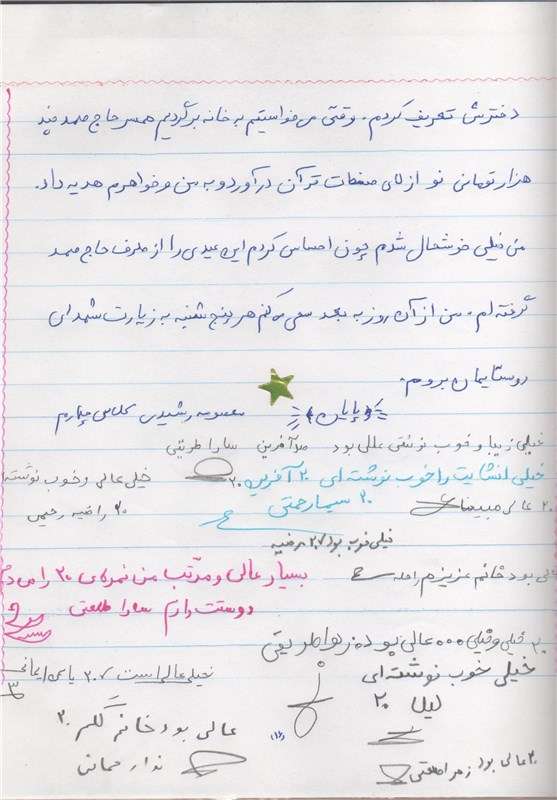 دخترش تعریف کردم. وقتی می خواستیم به خانه برگردیم همسر حاج صمد پنج
هزار تومانی نو از لای صفحات قرآن درآورد و به من و خواهرم هدیه داد.
من خیلی خوشحال شدم چون احساس کردم این عیدی را از طرف حاج صمد
گرفته ام. من از آن روز به بعد سعی می کنم هر پنج شنبه به زیارت شهدای
روستایمان بروم.
«پایان» معصومه رشیدی کلاس چهارم
خیلی زیبا و خوب نوشتی عالی بود صد آفرین سارا طریقی
خیلی انشایت را خوب نوشته ای ۲۰ آفرین ۲۰
خیلی عالی و خوب نوشته
۲۰ عالی مبینا
۲۰ سیما رحمتی
۲۰ راضیه رحیمی
خیلی خوب بود ۲۰ مرضیه
عالی بود خانم عزیزم راحله
بسیار عالی و مرتب من نمره ی ۲۰ را می دم
دوستت دارم سارا طلعتی
۲۰ خیلی و خیلی ... عالی بوده زهرا طریقی
خیلی خوب نوشته ای
لیلا ۲۰
خیلی عالی است ۲۰ یاس ایمانی
عالی بود خانم گلم ۲۰
۲۰ عالی بود زهرا طلعتی